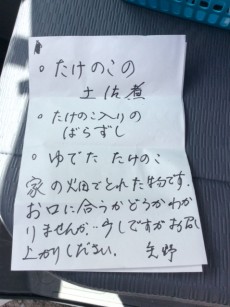 ○ たけのこの
土佐煮
○ たけのこ入りの
ばらずし
○ ゆでた たけのこ
家の畑でとれた物です。
お口に合うかどうかわか
りませんが…少しですがお召し
上がりください。 矢野